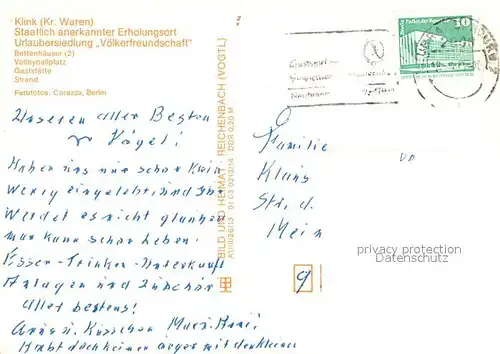 Klink (Kr. Waren)
Staatlich anerkannter Erholungsort
Urlaubersiedlung „Völkerfreundschaft"
Bettenhäuser (2)
Volleyballplatz
Gaststätte
Strand
Farbfotos: Corazza, Berlin
BILD UND HEIMAT REICHENBACH (VOGTL)
A1/III/26/13 01 03 0212/14 DDR 0,20 M
10
Unseren aller Besten
Vögel!
Haben uns nur schon klein
wenig eingelebt, und Ihr
werdet es nicht glauben
man kann schon leben!
Essen - Trinken - Unterkunft
Anlagen und Zubehör
alles bestens!
Gruss u. Küsschen
Habt doch keinen ärger mit den kleinen
Familie
Klaus
Str. d.
Mein
privacy protection
Datenschutz
g